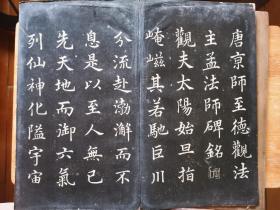 唐京師至德觀法
主孟法師碑銘
觀夫太陽始旦指
崦嵫其若馳巨川
分流赴渤澥而不
息是以至人無已
先天地而御六氣
列仙神化隘宇宙